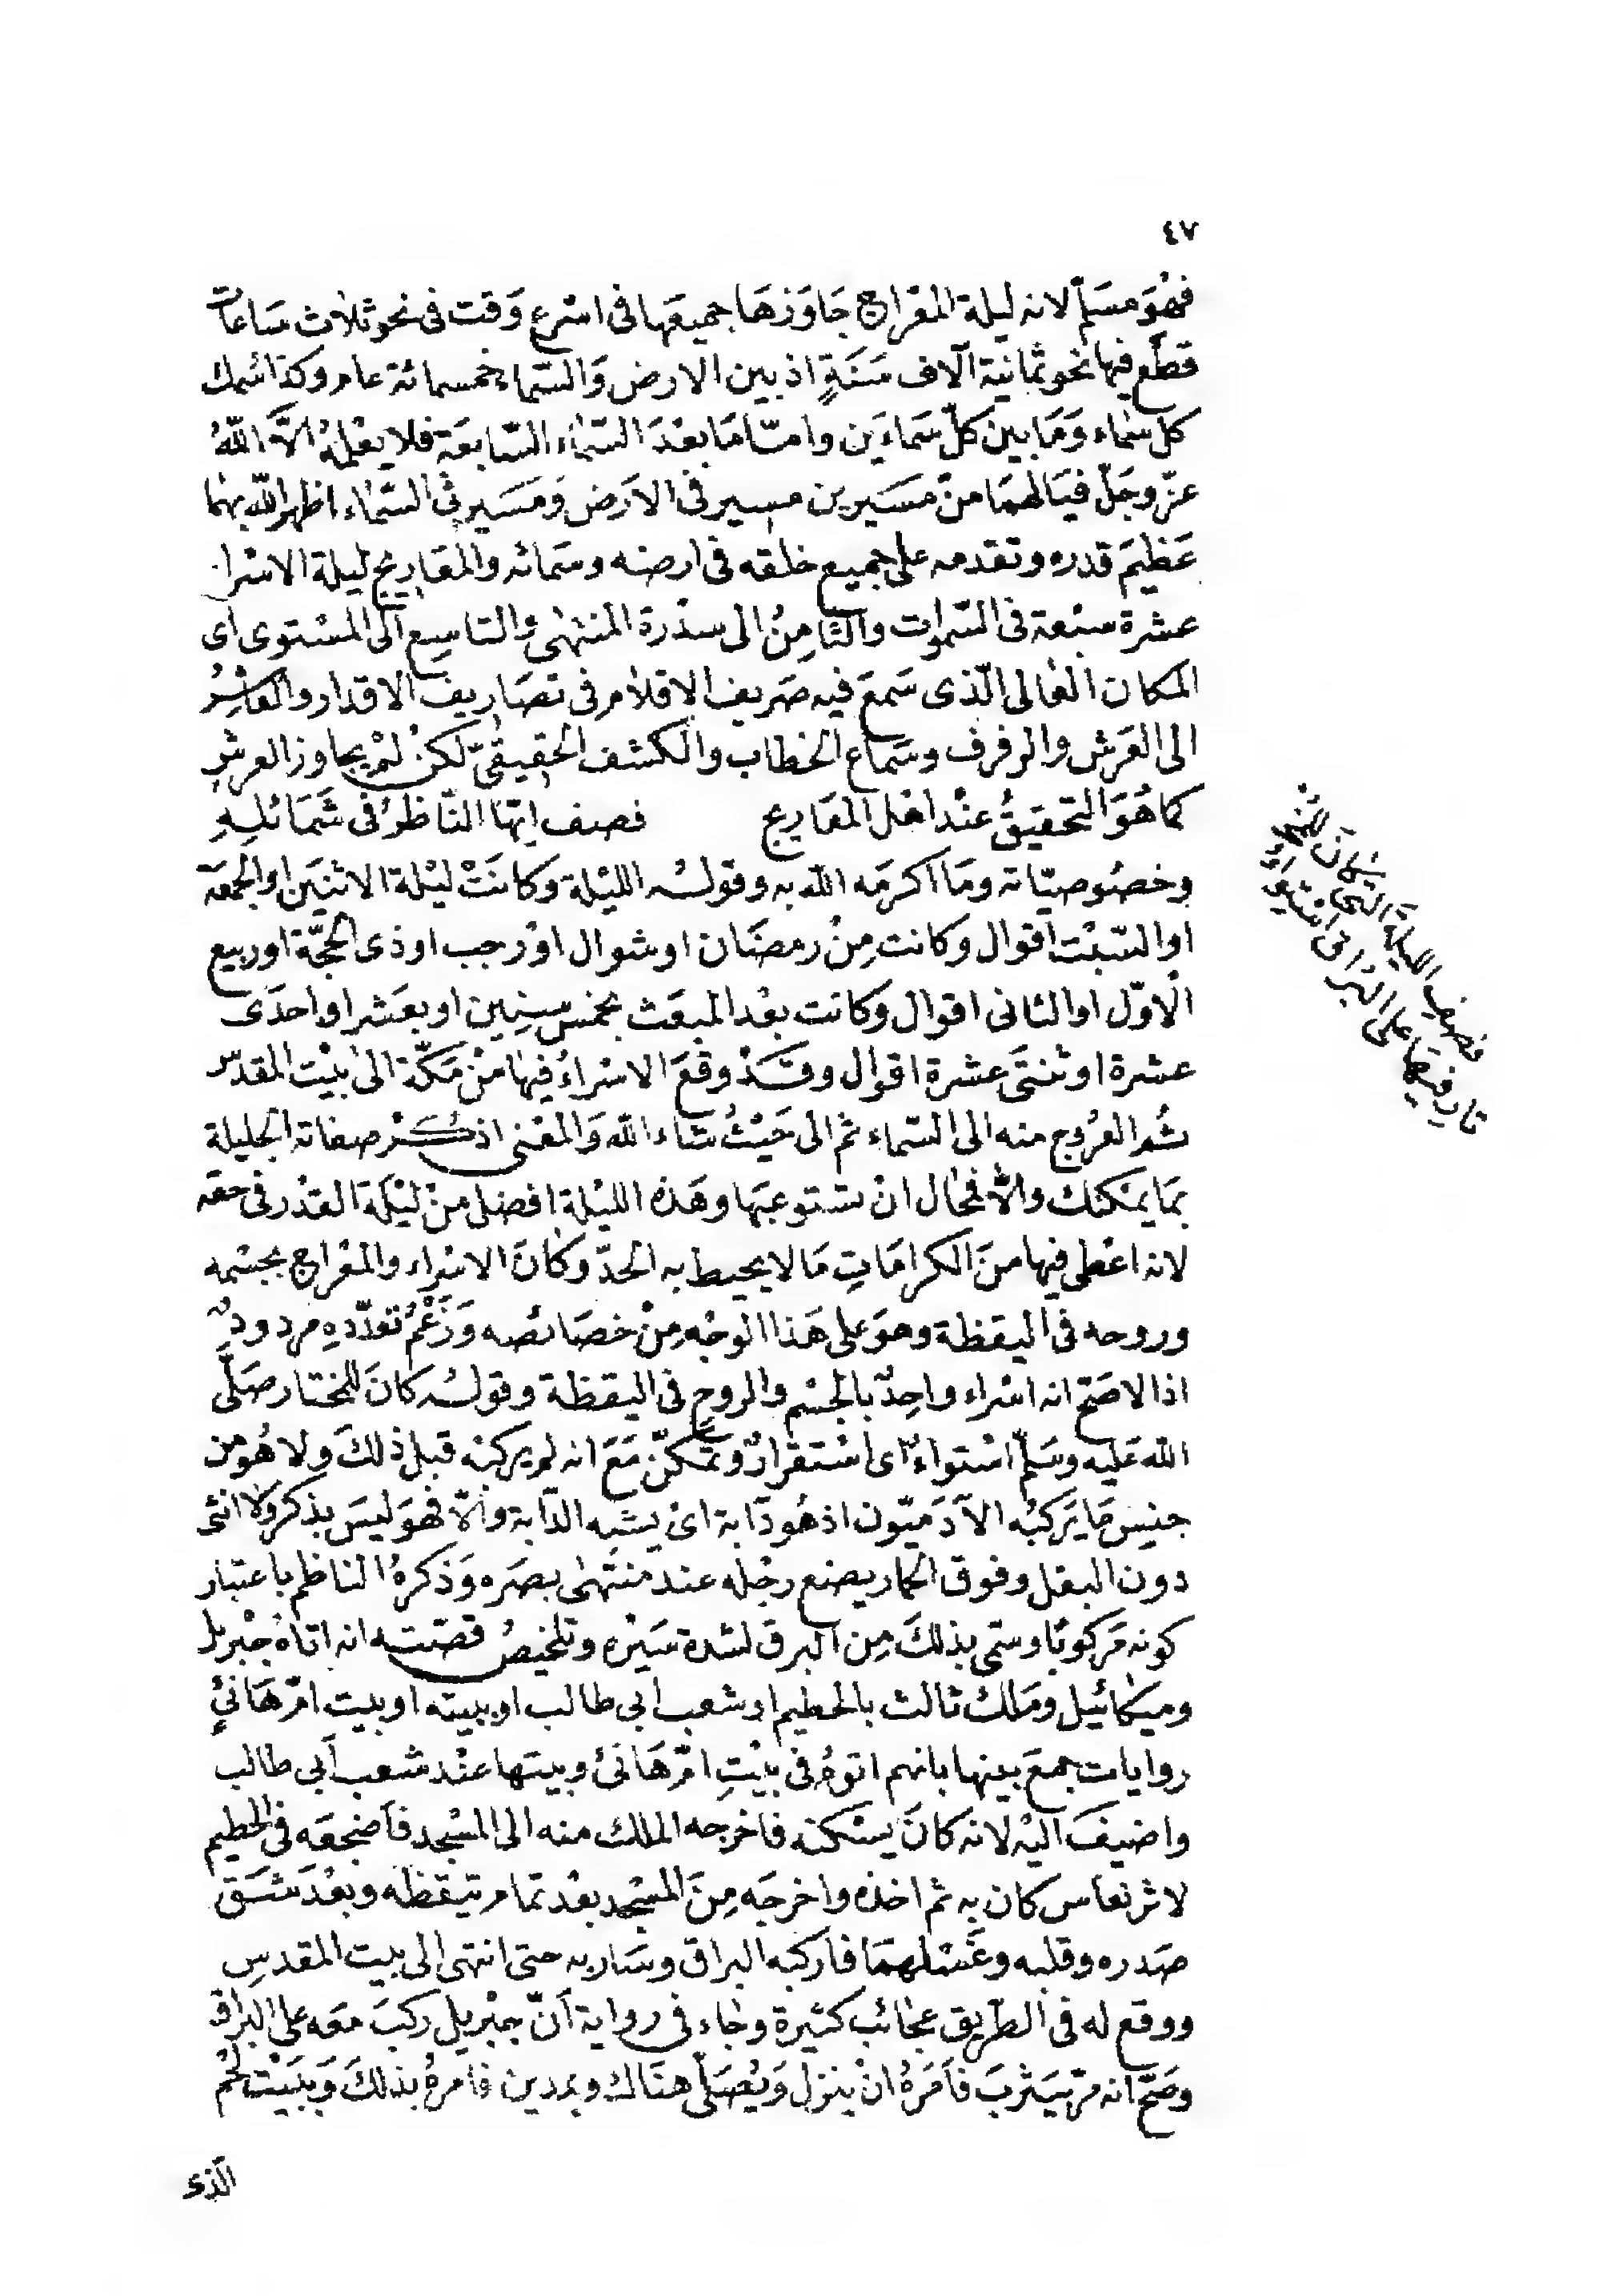 ٤٧
فهُوَ مسَلم لانه ليلة المعْراج جَاوَزهَا جميعَها فى اسْرع وَقت فى نحو ثلاث سَاعاتٍ
قطَع فيها نحو ثمانية آلاف سَنَةٍ اذ بين الارض وَالسّماء خمسمائة عام وكذا سُمك
كل سماء وَمَا بين كلّ سَماءَين وامّا مَا بعْدَ السّماء السّابعَة فلا يعْلمهُ الاَّ اللّهُ
عزّ وجَلّ فيَالهمَا منْ مسَيرين مسير فى الارَض وَمَسَير فى السّماء اظهر اللّه بهما
عَظيمَ قدره وتقدمه على جميع خلقه فى ارضه وسَمائه والمعَاريج ليلة الاسْرا
عشرة سبْعة فى السّموات والثّامِنُ الى سدْرة المنتهٰى والتاسِع الى المسْتوى اى
المكان العٰالى الّذى سَمعَ فيه صَريف الاقلام فى تصَاريف الاقدار والعَاشِرُ
الى العَرش والرفرف وسَماع الخطاب والكشف الحقيقىّ لكنْ لمْ يجاوز العرش
كما هُوَ التحقيقُ عنْد اهْل المعَاريج فصف ايّها النّاظرُ فى شَمَائلِهِ
وخصُوصيّاته ومَا اكرمَه اللّه به وقولـُه الليْلة وكانَتْ ليْلة الاثنَين او الجمعَة
او السّبْت اقوال وكانت مِنْ رمضَان او شوال اوْ رجب او ذى الحجّة او ربيع
الْاوّل او الثانى اقوال وكانت بعْد المبعَث بخمس سِنِين او بعَشر او احدَى
عشرة او ثنتَى عشرة اقوال وقَـدْ وقعَ الاسْراءُ فيها منْ مَكّة الى بيْت المقدّس
ثُم العرُوج منه الى السّماء ثم الى حَيْثُ شاء اللّه وَالمعْنى اذكـُـرْ صفاته الجليلة
بمَا يمْكنك والاّ فمحَال انْ تستوعبَها وهَذه الليْلة افضل منْ ليْلَة القدْر فى حقه
لانه اعْطى فيها منَ الكرامَاتِ مَا لا يحيط به الحدّ وكانَ الاسْراء والمعْراج بجسْمه
وروحه فى اليقظة وهوَ على هَذا الوجْه مِنْ خصَائصه وَزَعْمُ تعدّدهِ مردودٌ
اذ الاصَحّ انه اسْراء واحِدٌ بالجسْم والروح فى اليقظة وقولـُه كانَ للمختار صَلّى
اللّه عَليْه وسَلّم اسْتواءٌ اى اسْتقرارٌ وتمكّن مَعَ انه لم يركبْه قبل ذلكَ ولا هُو من
جنِس مَا يَركبُه الآدَميّون اذ هُو دَابة اىْ يشبه الدّابة والاّ فهوَ ليسَ بذكر وَلا انثى
دون البغل وفوق الحمار يضع رجْله عند منتَهٰى بصَره وَذكرهُ الناظم باعتبار
كونه مَركوبًا وسمّى بذلكَ مِن البرق لشدة سَيْره وتلخيصُ قصّتــه انه اتاهُ جبْريل
وميكائيل ومَلك ثالث بالحطيم او شعب ابى طالب او بيته او بيت امّ هَانئٍ
روايات جمعَ بينها بانهم اتوهُ فى بيْتِ امّ هَانئ وبيتها عنْد شعب اَبى طالب
واضيفَ اليْه لانه كانَ يسْكنه فاخرجه الملك منه الى المسْجد فاَضجعَه فى الحطيم
لاثر نعاس كان به ثم اخذه واخرجَه مِنَ المسْجد بعْد تمام تيقظه وبعْدَ شَقّ
صَدره وقلبه وغَسْلهمَا فاركبه البراق وسَار به حتى انتهى الى بيت المقدسِ
ووقع له فى الطّريق عجائب كثيرة وجاء فى رواية اَنّ جبْريل ركبَ معَه على البراق
وصَحّ انه مرّ بيَثربَ فاَمَرهُ انْ ينزل وَيُصَلّى هنَاك وبمدين فامرهُ بذلكَ وَببَيْت لحْم
الّذى
فصفِ الليلةَ التى كانَ للمُخْـ
تارِ فيهَا على البُراقِ اسْتِواءُ